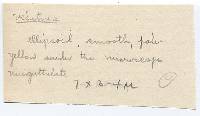 ellipsoid, smooth, pale
yellow under the microscope
uniguttulate
7 x 3-4 µ